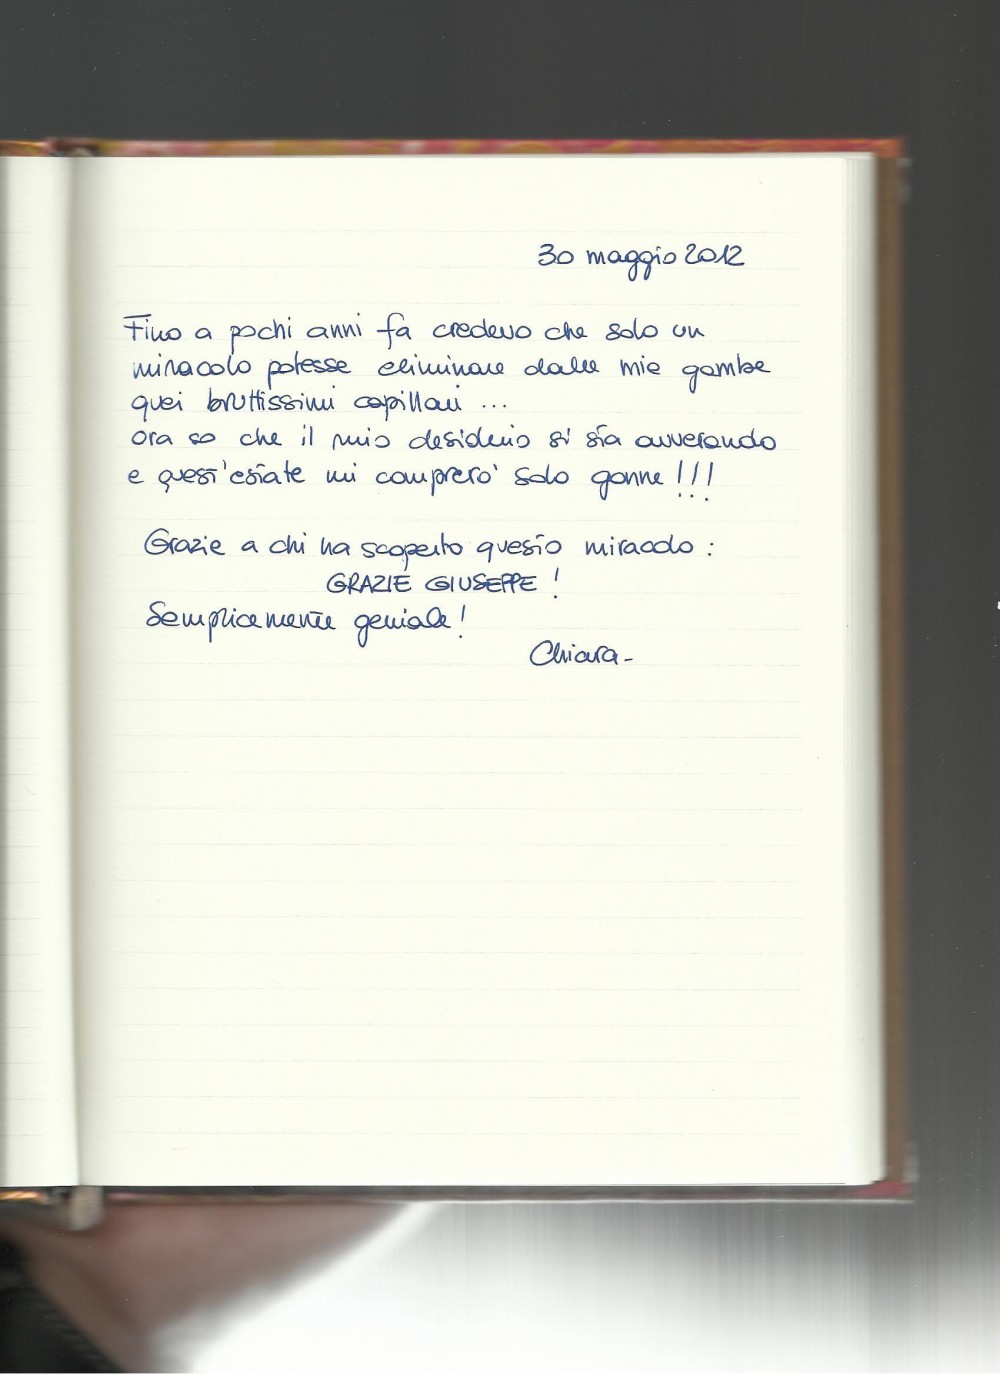 30 maggio 2012
Fino a pochi anni fa credevo che solo un
miracolo potesse eliminare dalle mie gambe
quei bruttissimi capillari ...
ora so che il mio desiderio si sta avverando
e quest'estate mi comprerò solo gonne!!!
Grazie a chi ha scoperto questo miracolo:
GRAZIE GIUSEPPE!
Semplicemente geniale!
Chiara-